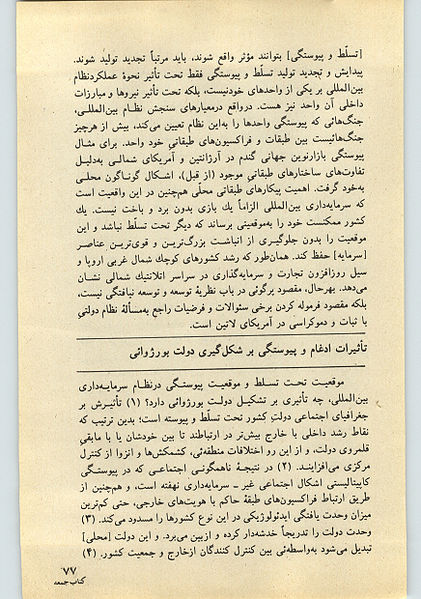 [تسلّط و پیوستگی] بتوانند مؤثر واقع شوند، باید مرتباً تجدید تولید شوند.
پیدایش و تجدید تولید تسلّط و پیوستگی فقط تحت تأثیر نحوهٔ عملکردنظام
بین‌المللی بر یکی از واحدهای خودنیست، بلکه تحت تأثیر نیروها و مبارزات
داخلی آن واحد نیز هست. درواقع درمعیارهای سنجش نظام بین‌المللـی،
جنگ‌هائی که پیوستگی واحدها را به‌این نظام تعیین می‌کند، بیش از هرچیز
جنگ‌هائیست بین طبقات و فراکسیون‌های طبقاتیِ خود واحد. برای مثال
پیوستگی بازارنوین جهانی گندم در آرژانتین و آمریکای شمالـی به‌دلیل
تفاوت‌های ساختارهای طبقاتیِ موجود (از قبل)، اشکال گوناگون محلـی
به‌خود گرفت. اهمیت پیکارهای طبقاتی محلّی هم‌چنین در این واقعیت است
که سرمایه‌داری بین‌المللی الزاماً یك بازی بدون برد و باخت نیست. یك
کشور ممکنست خود را به‌موقعیتی برساند که دیگر تحت تسلّط نباشد و این
موقعیت را بدون جلوگیری از انباشت بزرگ‌تریـن و قوی‌تریـن عناصـر
[سرمایه] حفظ کند. همان‌طور که رشد کشورهای کوچك شمال غربی اروپا و
سیل روزافزون تجارت و سرمایه‌گذاری در سراسر اتلانتیك شمالی نشـان
می‌دهد. بهرحال، مقصود پرگوئی در باب نظریهٔ توسعه و توسعه نیافتگی نیست،
بلکه مقصود فرموله کردن برخی سئوالات و فرضیات راجع به‌مسألهٔ نظام دولتیِ
با ثبات و دموکراسی در آمریکای لاتین است.
تأثیرات ادغام و پیوستگی بر شکل‌گیری دولت بورژوائی
موقعیـت تحـت تسـلط و موقعیـت پیوستگـی درنظـام سرمایـه‌داری
بین‌المللی، چه تأثیری بر تشکیل دولـت بورژوائی دارد؟ (۱) تأثیـرش بر
جغرافیای اجتماعی دولتِ کشور تحت تسلّط و پیوسته است؛ بدین ترتیب که
نقاط رشد داخلی با خارج بیش‌تر در ارتباطند تا بین خودشان یا با مابقیِ
قلمروی دولت، و از این رو اختلافات منطقه‌ئی، کشمکش‌ها و انزوا از کنترل
مرکزی می‌افزاینـد. (۲) در نتیجـهٔ ناهمگونـی اجتماعـی که در پیوستگـی
کاپیتالیستی اشکال اجتماعی غیر ــ سرمایه‌داری نهفته است، و هم‌چنین از
طریق ارتباط فراکسیون‌های طبقهٔ حاکم با هویت‌های خارجی، حتی کم‌ترین
میزان وحدت یافتگی ایدئولوژیکی در این نوع کشورها را مسدود می‌کند. (۳)
وحدت دولت را تدریجاً خدشه‌دار کرده و ازبین می‌برد. و این دولت [محلی]
تبدیل می‌شود به‌واسطه‌ئی بین کنترل کنندگان ازخارج و جمعیت کشور. (۴)
۷۷
کتاب جمعه